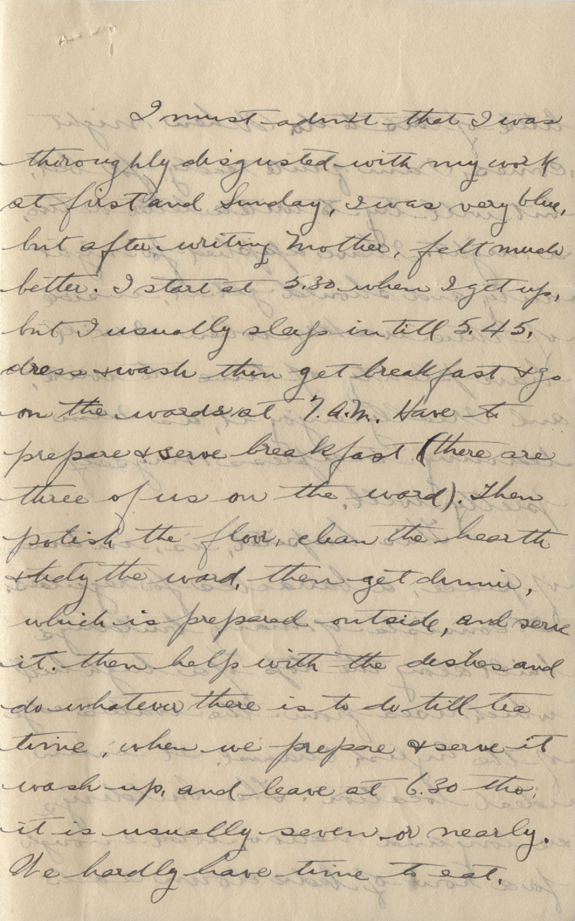 I must admit that I was
thoroughly disgusted with my work
at first and Sunday, I was very blue,
but after writing Mother, felt much
better. I start at 5.30 when I get up,
but I usually sleep in till 5.45,
dress & wash then get breakfast & go
on the wards at 7. A.M. Have to
prepare & serve breakfast (there are
three of us on the ward). Then
polish the floor, clean the hearth
& tidy the ward, then get dinner,
which is prepared outside, and serve
it. then help with the dishes and
do whatever there is to do till tea
time, when we prepare & serve it
wash up, and leave at 6.30 tho.
it is usually seven or nearly.
We hardly have time to eat.